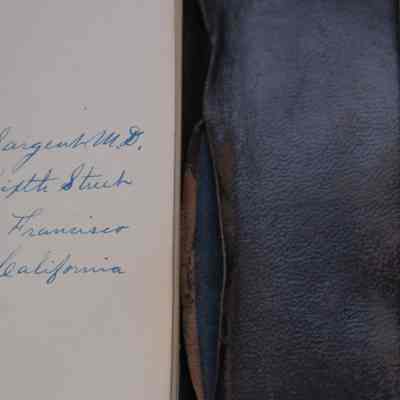 Sargent M.D.
ixth Street
Francisco
California